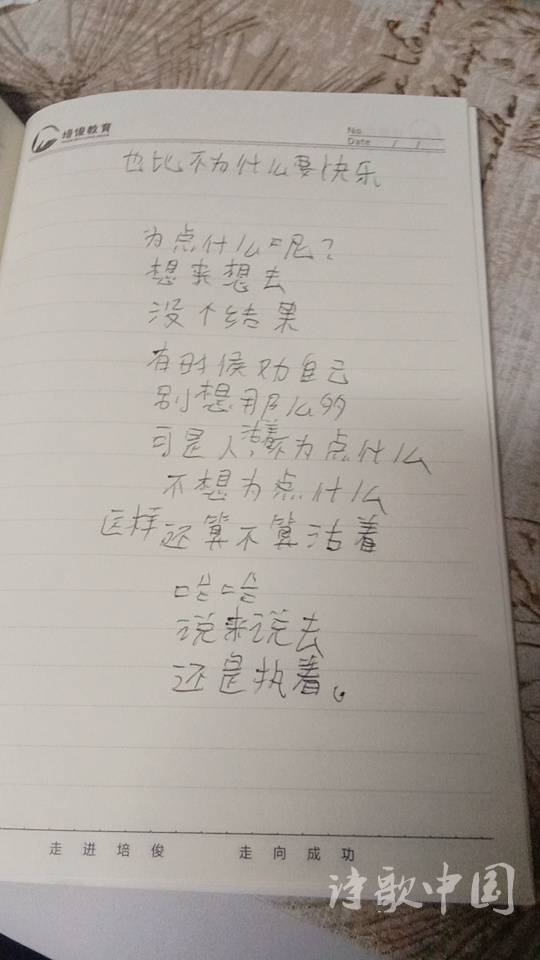 培俊教育
No
Date / /
也比不为什么要快乐
为点什么呢?
想来想去
没个结果
有时候劝自己
别想那么多
可是人,活着不为点什么
不想为点什么
这样还算不算活着
哈哈
说来说去
还是执着。
走进培俊 走向成功
诗歌中国